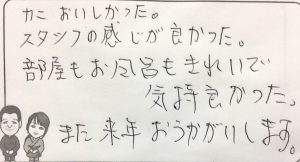 カニ おいしかった。
スタッフの感じが良かった。
部屋もお風呂もきれいで
気持良かった。
また来年おうかがいします。